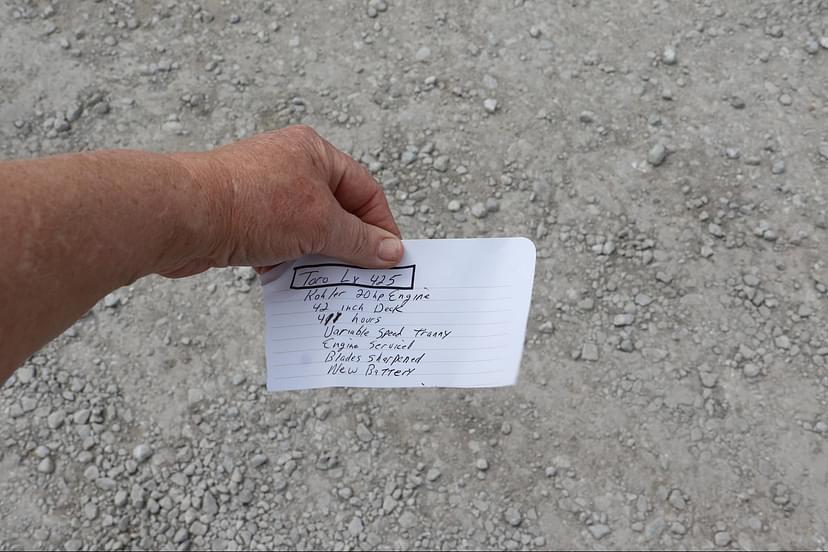 Toro Lx 425
Kohler 20hp Engine
42 inch Deck
hours
Variable Speed Tranny
Engine Serviced
Blades sharpened
New Battery